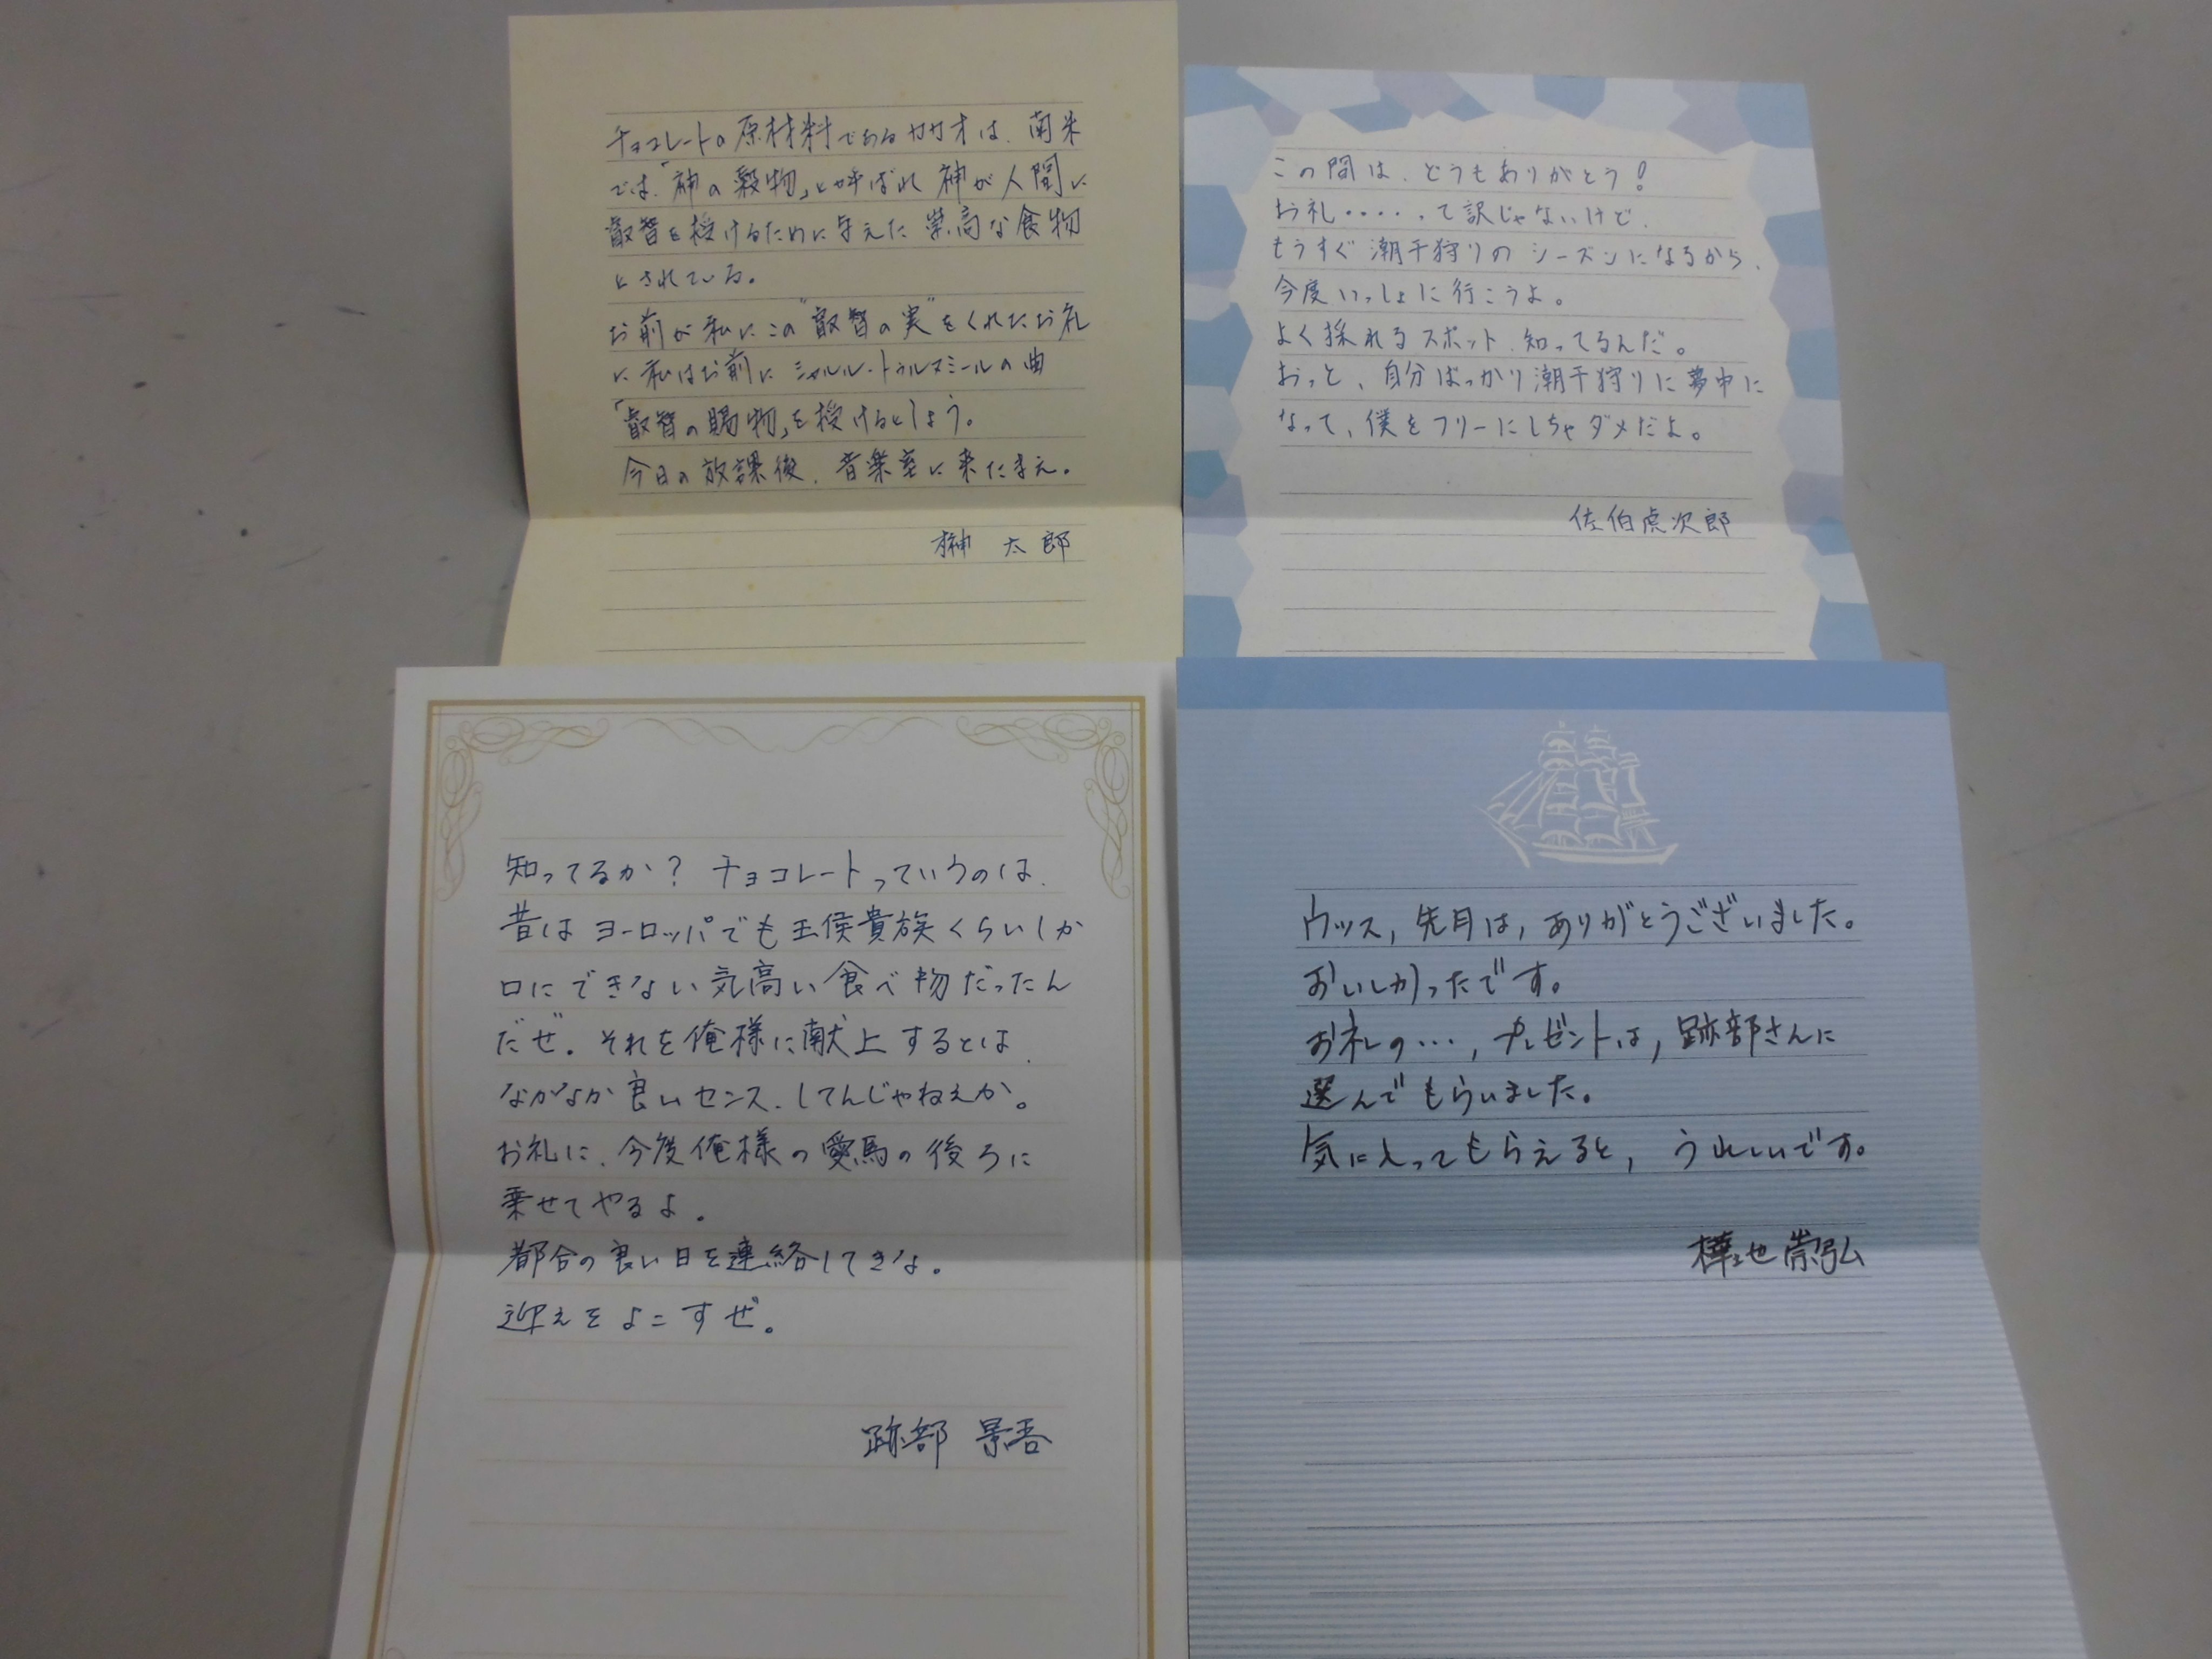 チョコレートの原材料であるカカオは、南米
では、「神の穀物」と呼ばれ 神が人間に
叡智を授けるために与えた崇高な食物
とされている。
お前が私にこの“叡智の実”をくれたお礼
に私はお前に シャルル・トゥルヌミールの曲
「叡智の賜物」を授けるとしよう。
今日の放課後、音楽室に来たまえ。
榊 太郎
この間は、どうもありがとう!
お礼・・・・・って訳じゃないけど、
もうすぐ潮干狩りのシーズンになるから、
今度いっしょに行こうよ。
よく採れるスポット、知ってるんだ。
おっと、自分ばっかり潮干狩りに夢中に
なって、僕をフリーにしちゃダメだよ。
佐伯虎次郎
知ってるか? チョコレートっていうのは、
昔はヨーロッパでも王侯貴族くらいしか
口にできない気高い食べ物だったん
だぜ。それを俺様に献上するとは、
なかなか良いセンス、してんじゃねえか。
お礼に、今度俺様の愛馬の後ろに
乗せてやるよ。
都合の良い日を連絡してきな。
迎えをよこすぜ。
跡部 景吾
ウッス, 先月は, ありがとうございました。
おいしかったです。
お礼の…, プレゼントは, 跡部さんに
選んでもらいました。
気に入ってもらえると, うれしいです。
樺地崇弘